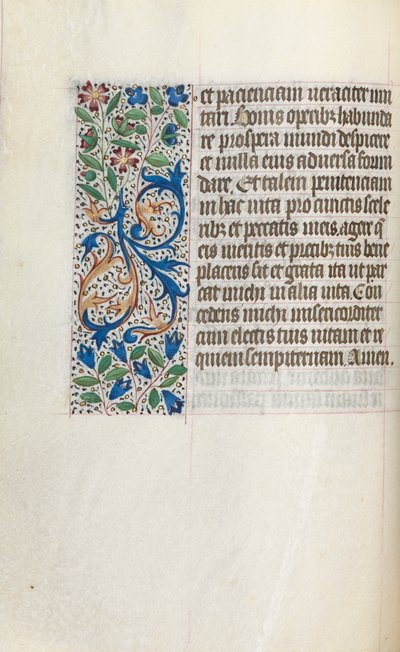 et pacienciam veraciter imi
tari. Bonis operibꝫ habunda
re prospera mundi despicere
et nulla eius adversa formi
dare. Et talem penitenciam
in hac vita pro cunctis scele
ribꝫ et peccatis meis, ager q̄
eis meritis et precibꝫ tuis bene
placens sit et grata ita ut par
cat michi in alia vita. Con
cedens michi misericorditer
cum electis tuis vitam et re
quiem sempiternam. Amen.